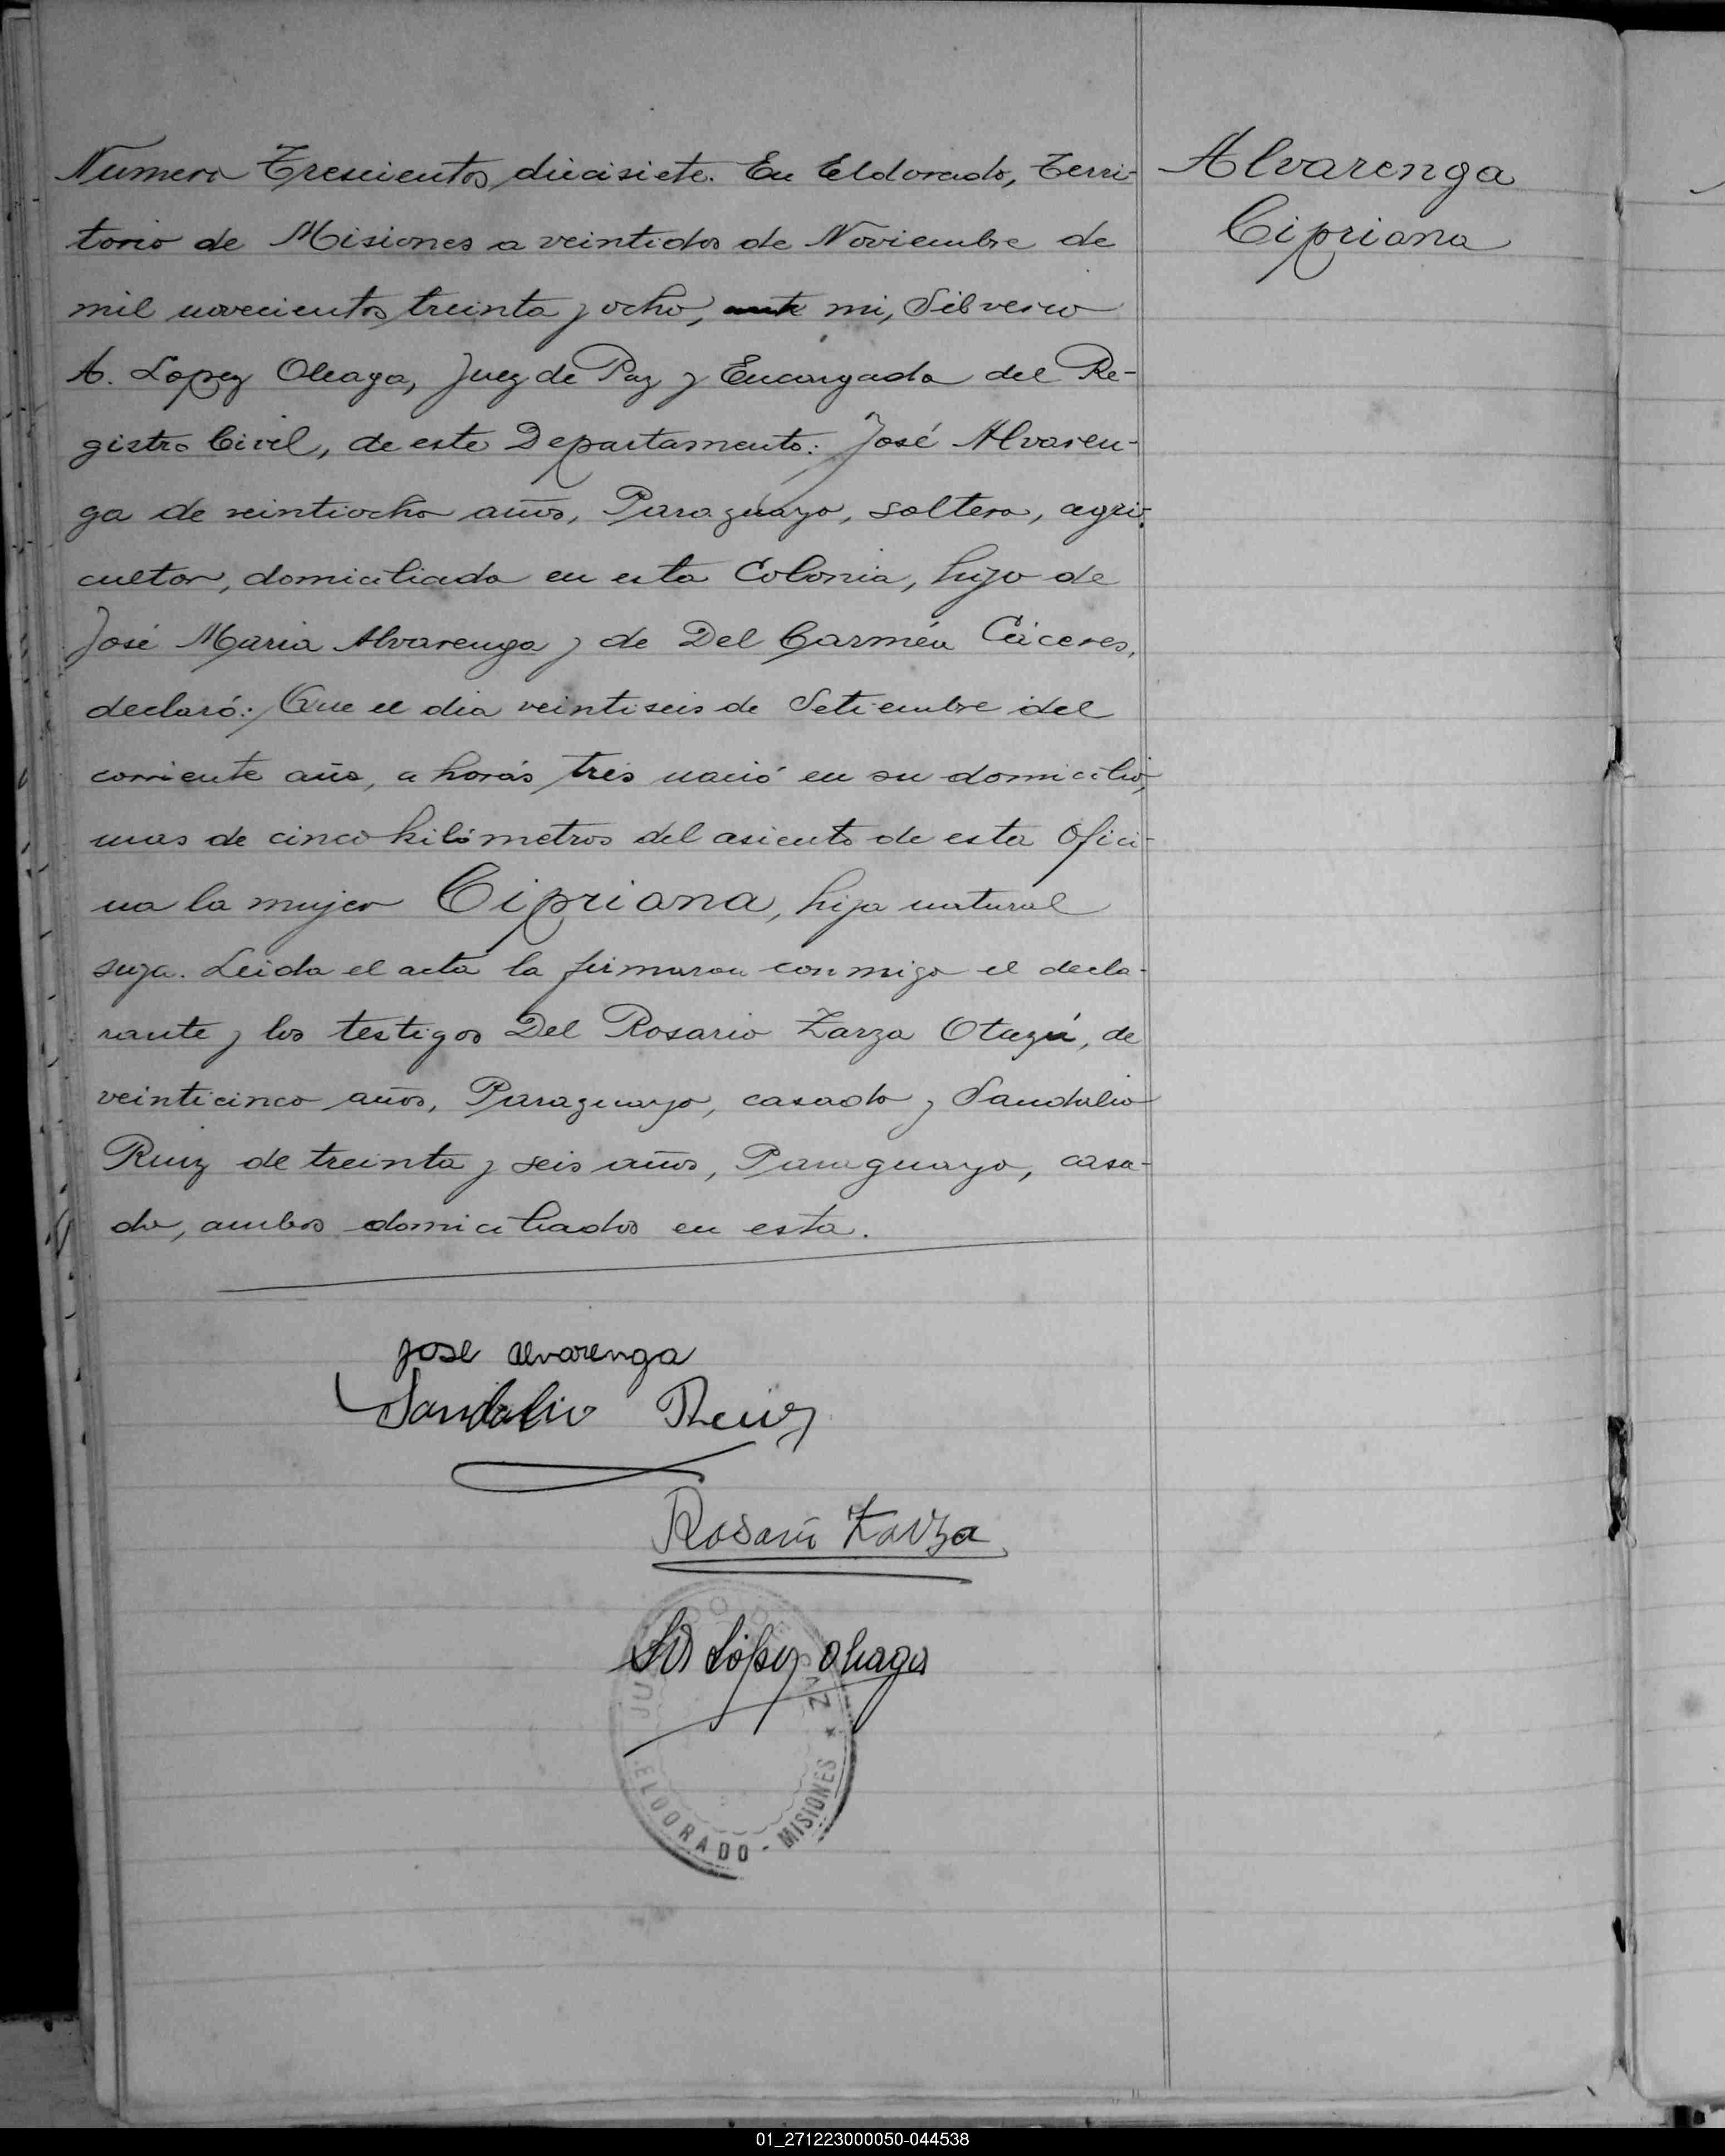 Numero Trescientos diecisiete. En Eldorado, Terri-
torio de Misiones a veintidos de Noviembre de
mil novecientos treinta y ocho, ante mi, Silverio
A. Lopez Oleaga, Juez de Paz y Encargado del Re-
gistro Civil, de este Departamento: José Alvaren-
ga de veintiocho años, Paraguayo, soltero, agri-
cultor, domiciliado en esta Colonia, hijo de
José Maria Alvarenga y de Del Carmén Cáceres,
declaró: Que el dia veintiseis de Setiembre del
corriente año, a horás trés nació en su domicilio,
mas de cinco kilómetros del asiento de esta Ofici-
na la mujer Cipriana, hija natural
suya. Leida el acta la firmaron conmigo el decla-
rante y los testigos Del Rosario Zarza Otazú, de
veinticinco años, Paraguayo, casado y Sandalio
Ruiz de treinta y seis años, Paraguayo, casa-
do, ambos domiciliados en esta.
Alvarenga
Cipriana
jose alvarenga
Sandalio Ruiz
Rosario Zarza
López Oleaga
JUZGADO DE PAZ
ELDORADO - MISIONES
01_271223000050-044538